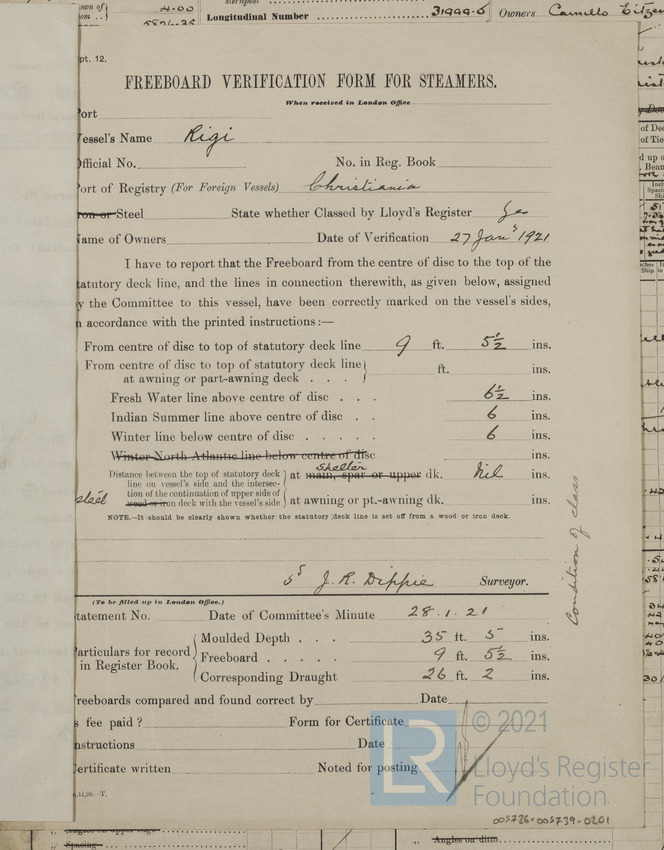 4.00
Longitudinal Number 31999.6 Owners Camillo Eitzen
pt. 12.
FREEBOARD VERIFICATION FORM FOR STEAMERS.
When received in London Office
Port
Vessel's Name Rigi
Official No. No. in Reg. Book
Port of Registry (For Foreign Vessels) Christiania
Iron or Steel State whether Classed by Lloyd's Register Yes
Name of Owners Date of Verification 27 Jany 1921
I have to report that the Freeboard from the centre of disc to the top of the
tatutory deck line, and the lines in connection therewith, as given below, assigned
y the Committee to this vessel, have been correctly marked on the vessel's sides,
n accordance with the printed instructions:—
From centre of disc to top of statutory deck line 9 ft. 5½ ins.
From centre of disc to top of statutory deck line
at awning or part-awning deck . . . ft. ins.
Fresh Water line above centre of disc . . . 6½ ins.
Indian Summer line above centre of disc . . 6 ins.
Winter line below centre of disc . . . . . 6 ins.
Winter North Atlantic line below centre of disc ins.
Distance between the top of statutory deck
line on vessel's side and the intersec-
tion of the continuation of upper side of
wood or iron deck with the vessel's side
steel
at main, spar or upper dk. shelter Nil ins.
at awning or pt.-awning dk. ins.
NOTE.—It should be clearly shown whether the statutory deck line is set off from a wood or iron deck.
Condition of class
J. R. Dippie Surveyor.
(To be filled up in London Office.)
tatement No. Date of Committee's Minute 28.1.21
articulars for record
in Register Book.
Moulded Depth . . . 35 ft. 5 ins.
Freeboard . . . . . 9 ft. 5½ ins.
Corresponding Draught 26 ft. 2 ins.
reeboards compared and found correct by Date
s fee paid? Form for Certificate
nstructions Date
ertificate written Noted for posting
,11,20.—T.
© 2021
LR
Lloyd's Register
Foundation
005726-005739-0201
Angles on upper edge
Spacing
" Angles on ditto